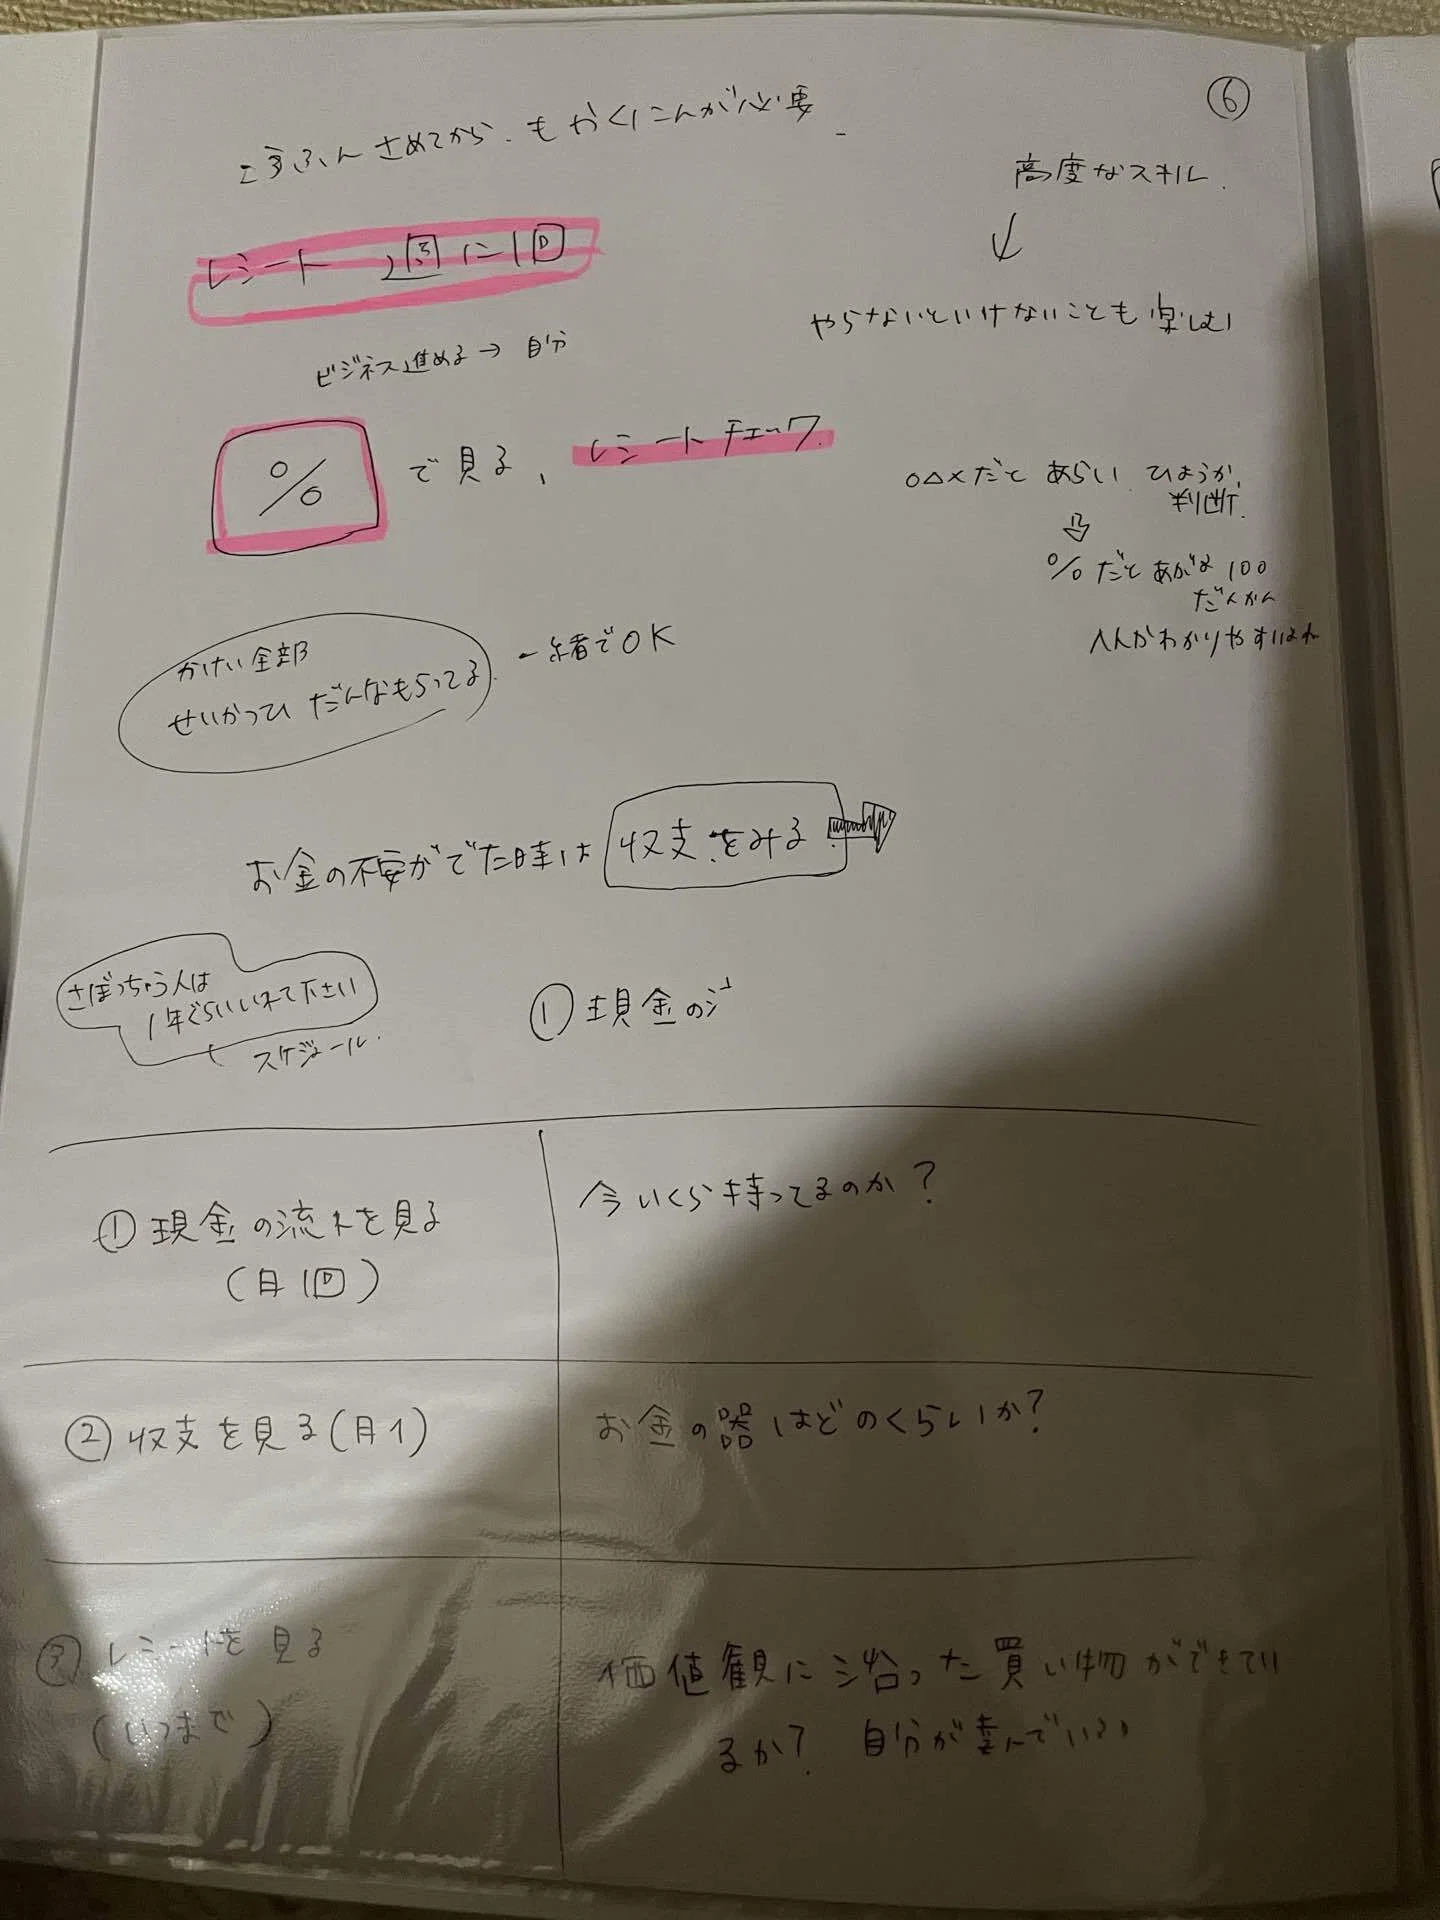 ⑥
こうふんさめてから、もかくにんが必要
高度なスキル
↓
やらないといけないことも楽しむ
レシート 2週に1回
ビジネス進める→自分
% で見る、レシートチェック
○△×だと あらい ひょうか、
判断
⇩
%だと あがる 100
だんかい
へんかわかりやすい
かけい全部
せいかつひ だんなもらってる
一緒でOK
お金の不安がでた時は 収支をみる
さぼっちゃう人は
1年ぐらいいれて下さい
スケジュール
① 現金の
① 現金の流れを見る
(月1回)
今いくら持ってるのか?
② 収支を見る(月1)
お金の器はどのくらいか?
③ レシートを見る
(いつまで)
価値観に沿った買い物ができてい
るか? 自分が